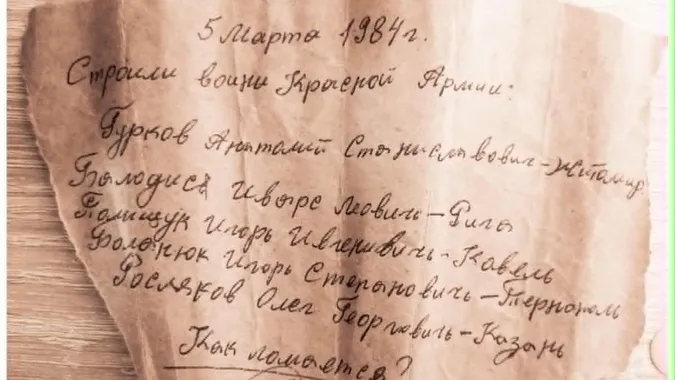 5 Марта 1984г.
Строили воини Красной Армии:
Гурков Анатолий Станиславович-Житомир
Балодись Иварс Леович-Рига
Полищук Игорь Ивгенивичь-Кавель
Боланюк Игорь Степановичь-Тернополь
Росляков Олег Георгиевичь-Казань
Как ломается?